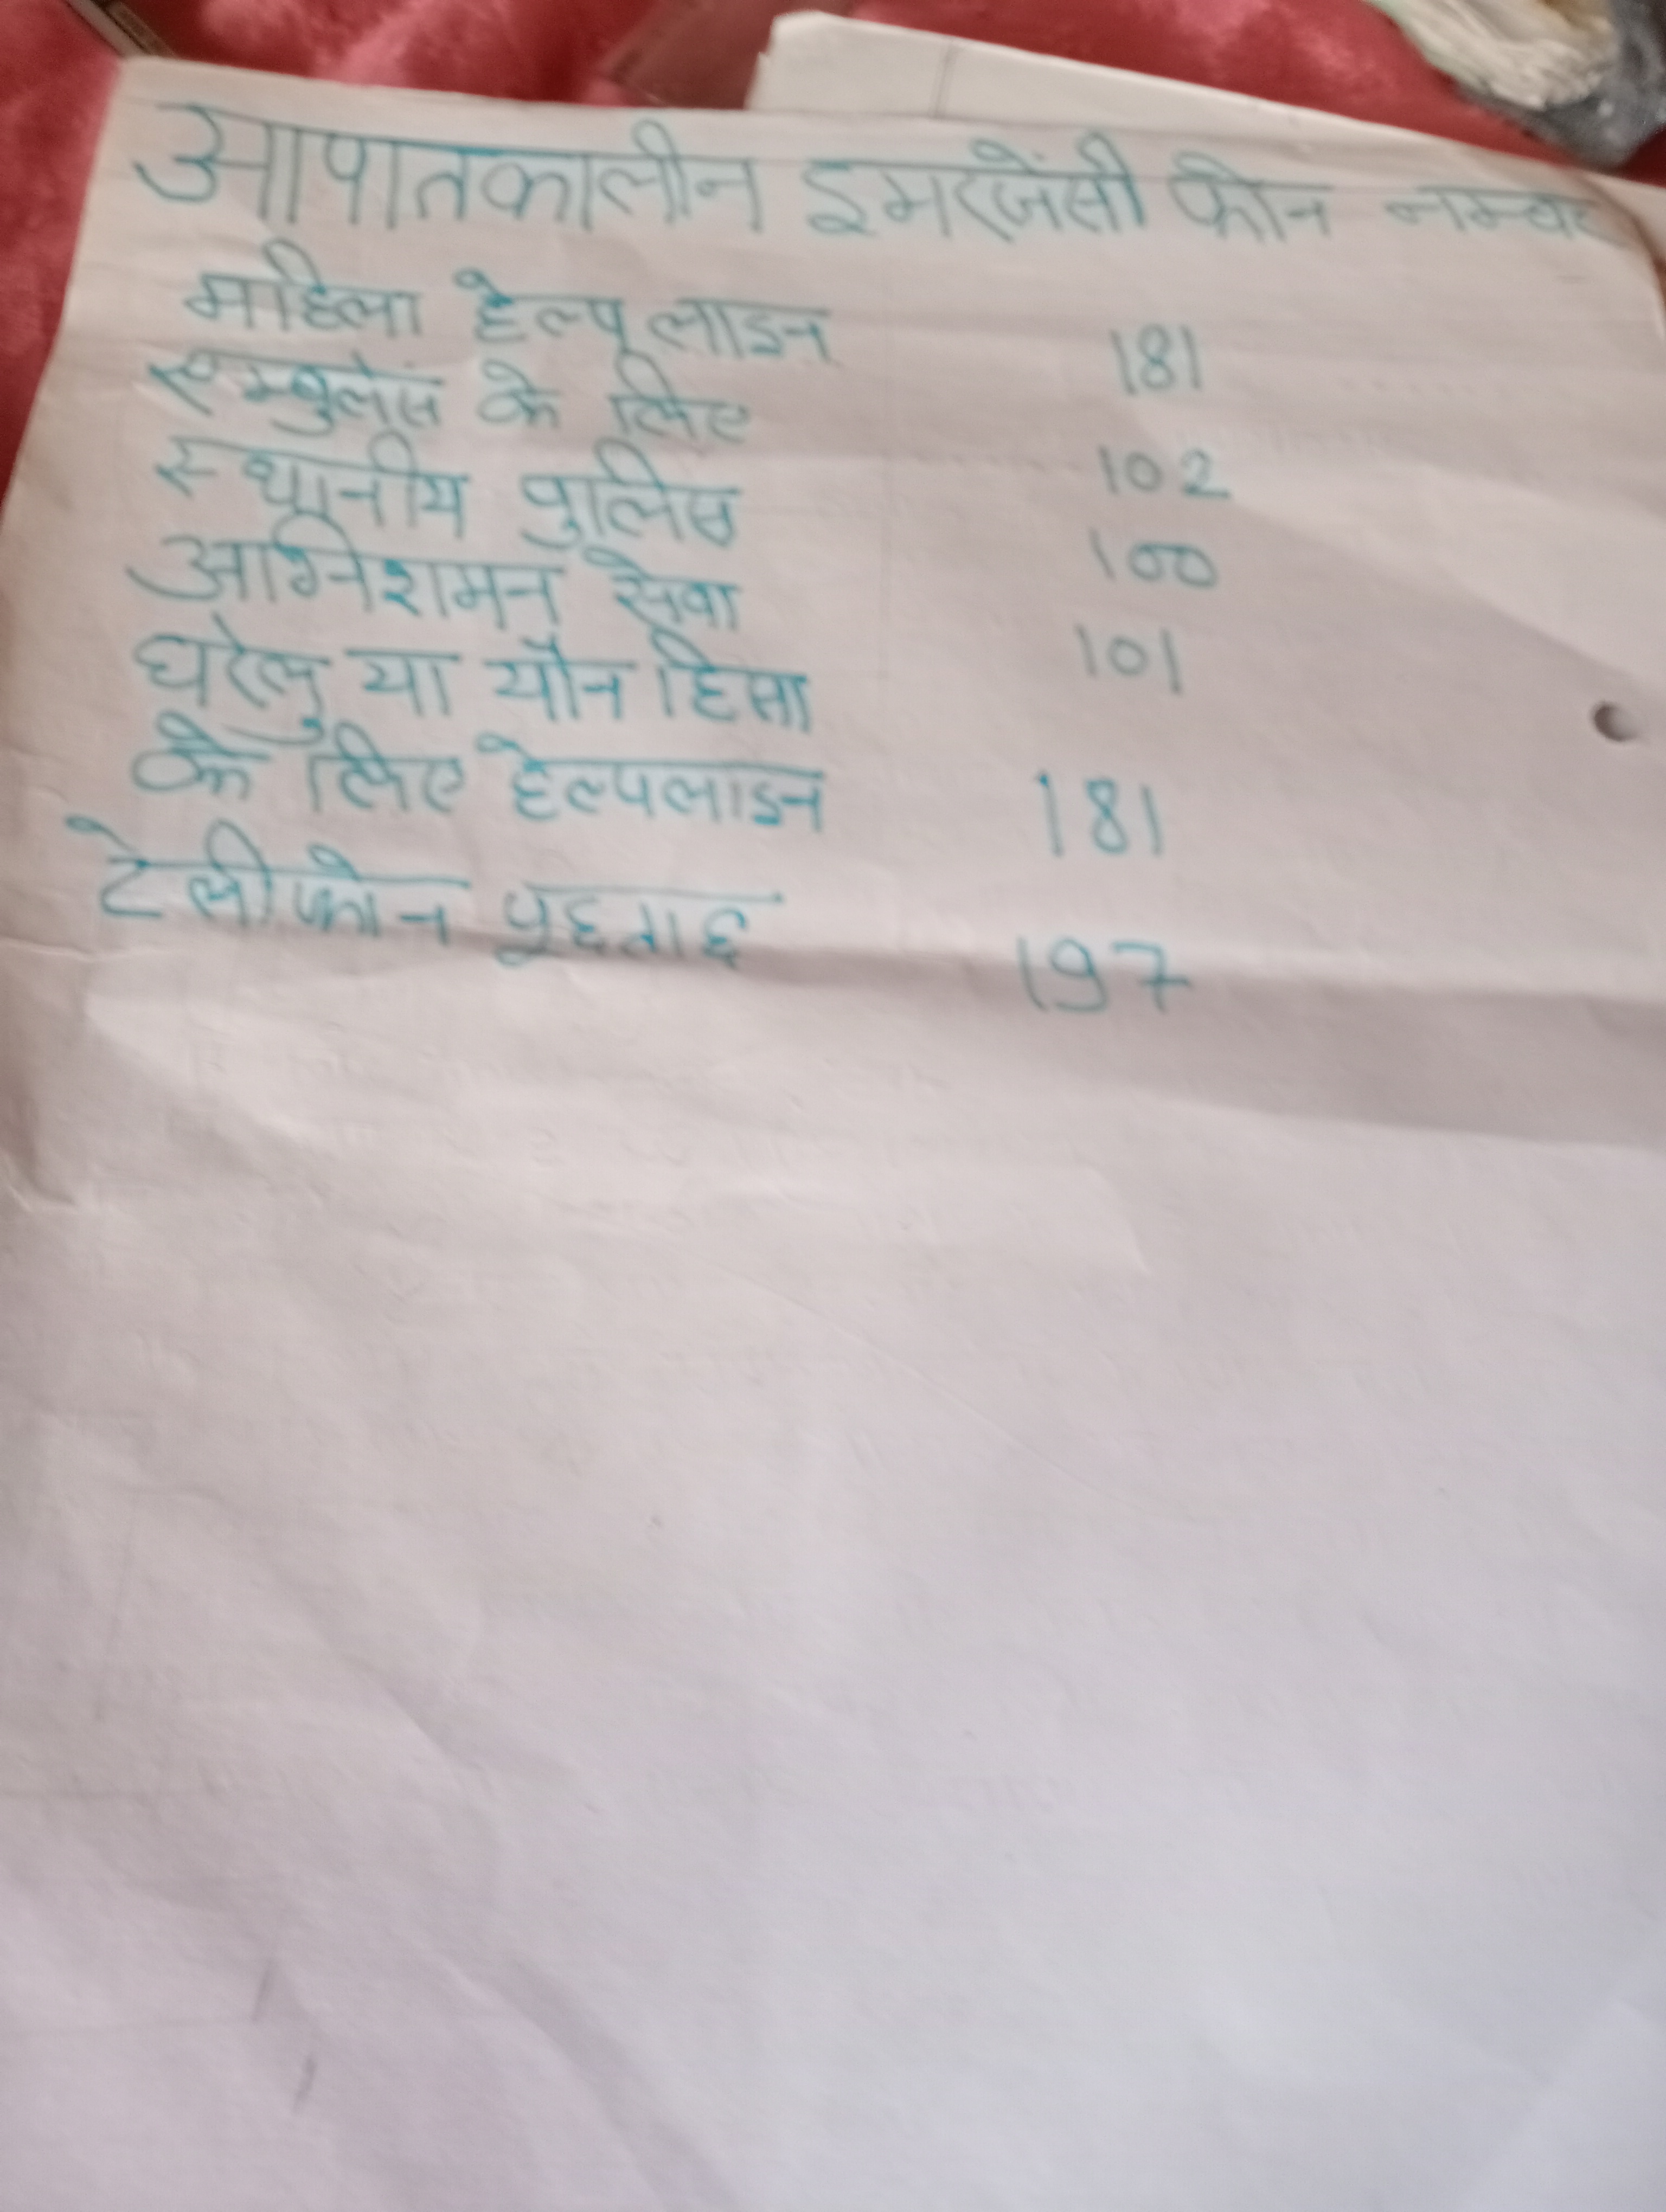 आपातकालीन इमरजेंसी फोन नम्बर
महिला हेल्पलाइन 181
एम्बुलेंस के लिए 102
स्थानीय पुलिस 100
अग्निशमन सेवा 101
घरेलु या यौन हिसा
के लिए हेल्पलाइन 181
टेलीफोन पूछताछ 197